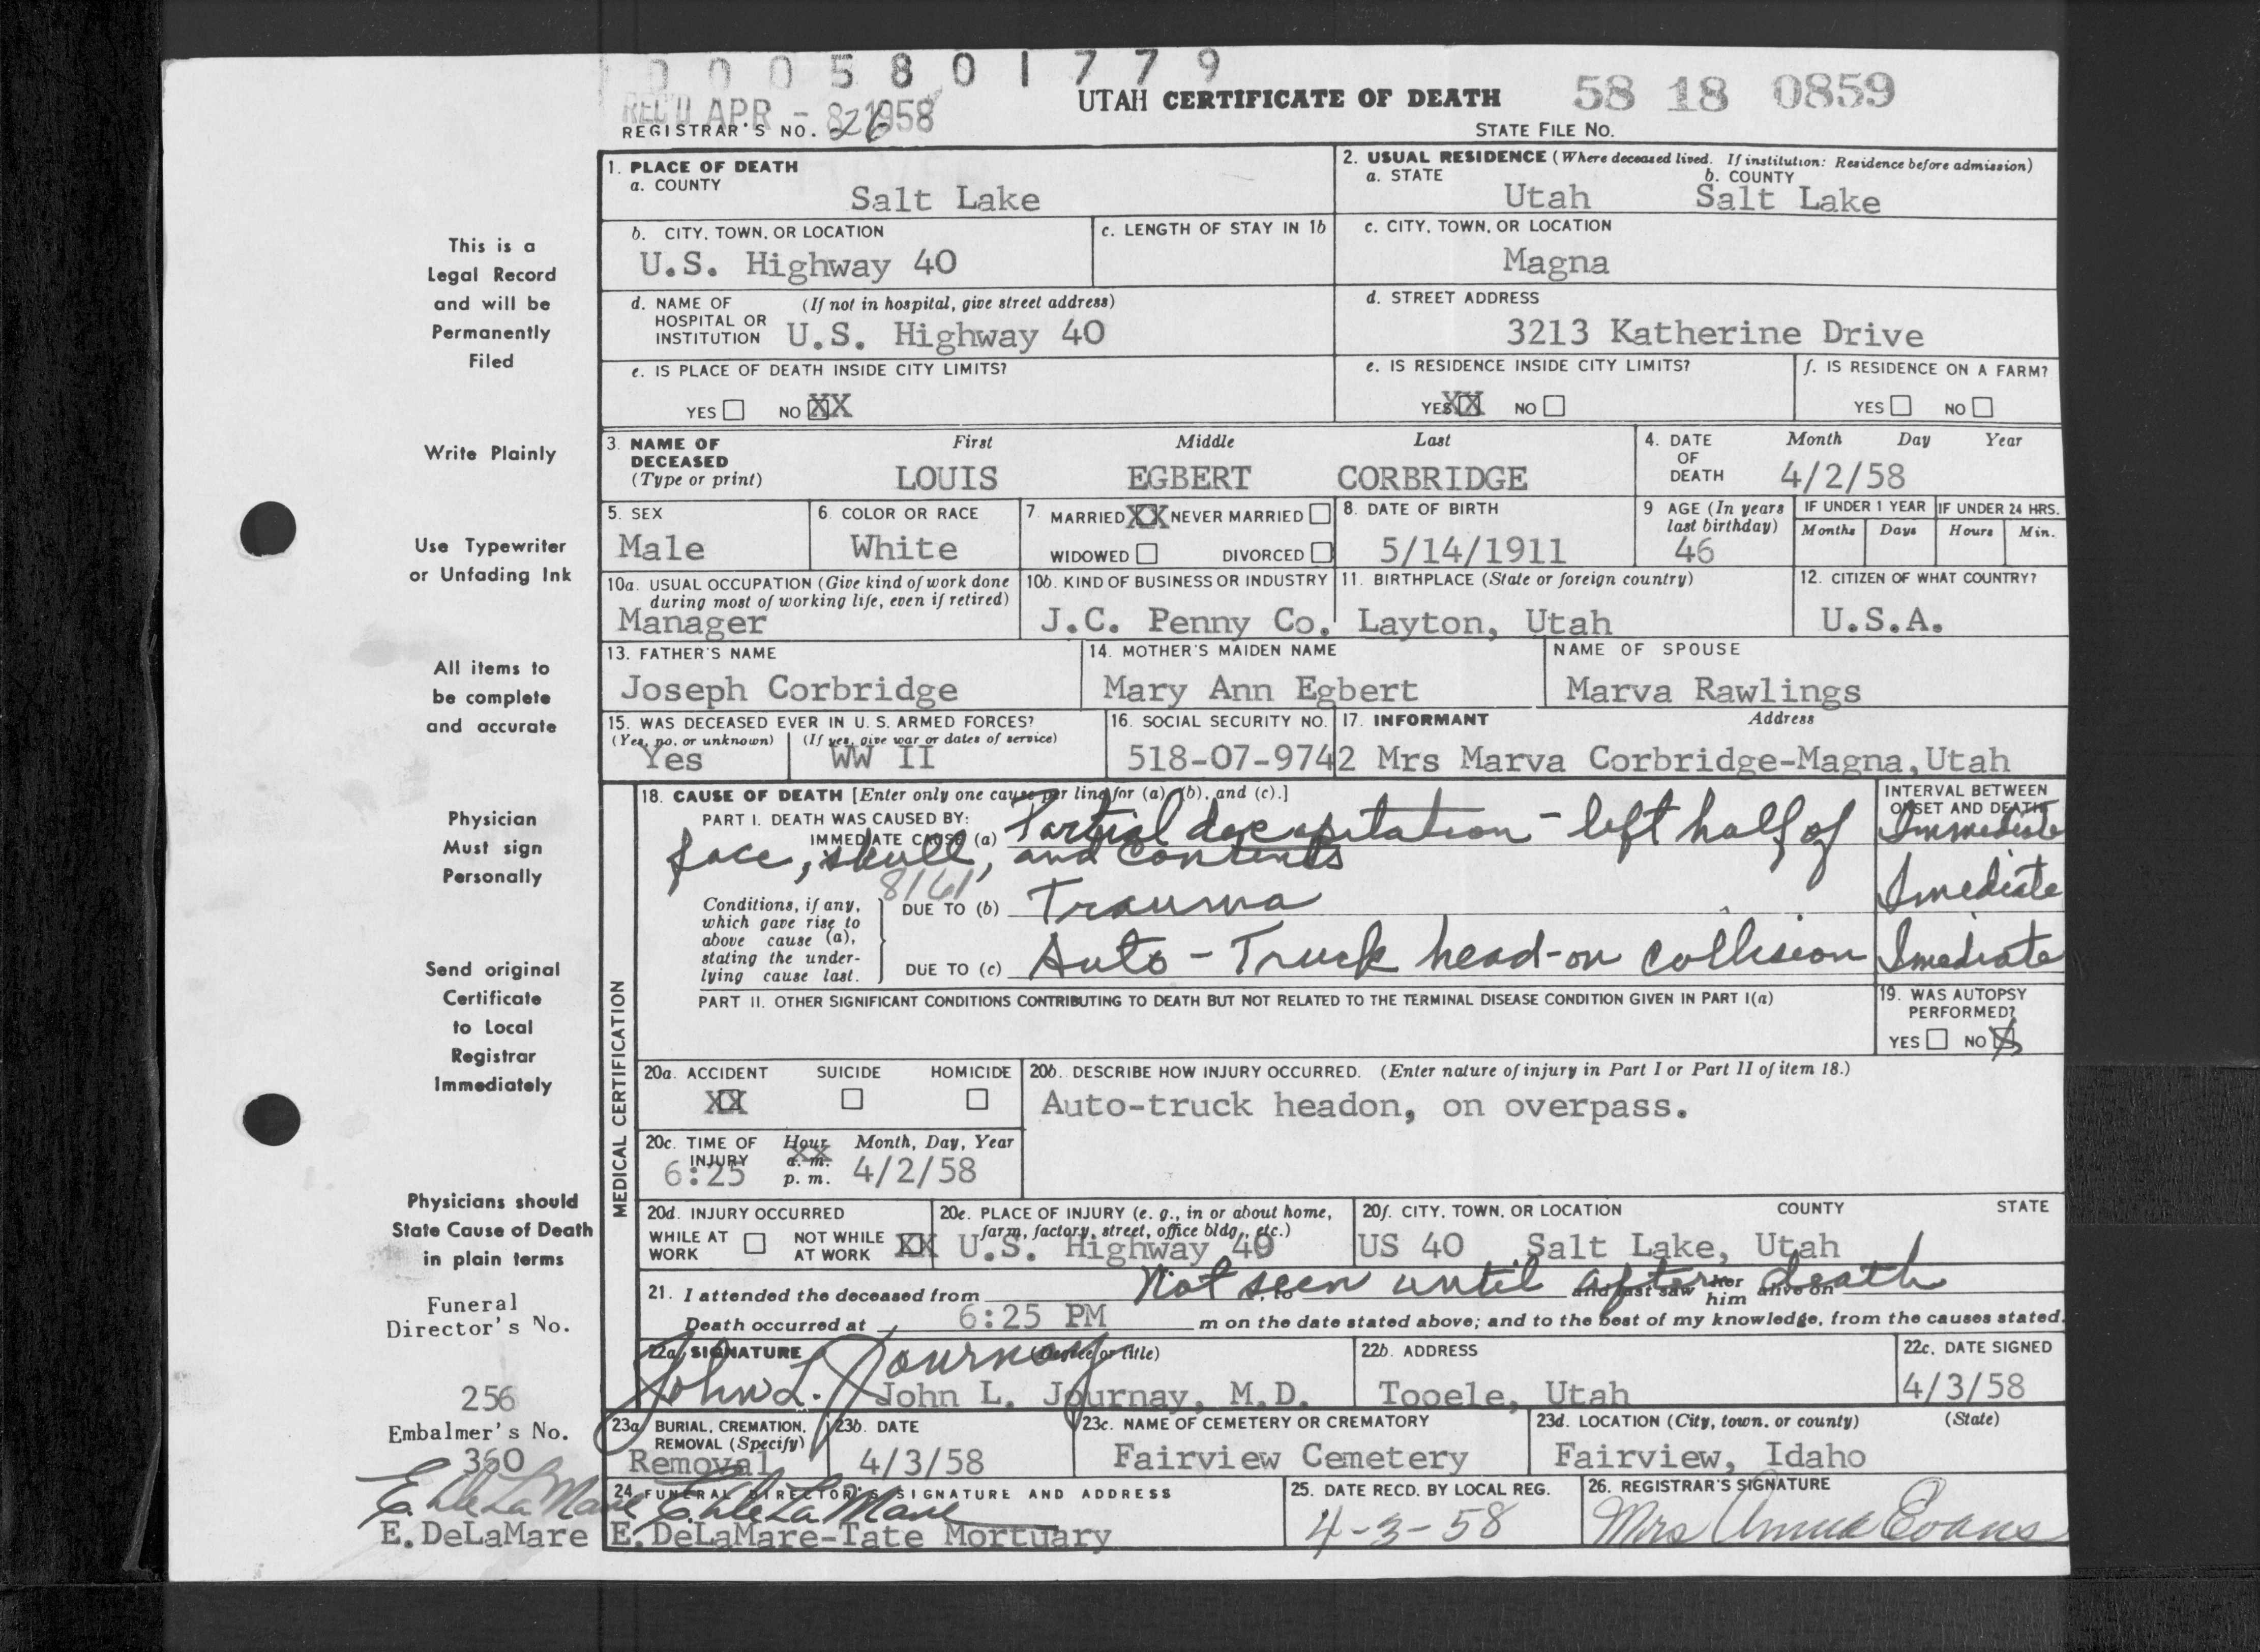 0 0 0 5 8 0 1 7 7 9
REC'D APR - 8 1958
UTAH CERTIFICATE OF DEATH
58 18 0859
REGISTRAR'S NO. 26
STATE FILE NO.
This is a
Legal Record
and will be
Permanently
Filed
Write Plainly
Use Typewriter
or Unfading Ink
All items to
be complete
and accurate
Physician
Must sign
Personally
Send original
Certificate
to Local
Registrar
Immediately
Physicians should
State Cause of Death
in plain terms
Funeral
Director's No.
256
Embalmer's No.
360
E. DeLaMare
E.DeLaMare
1. PLACE OF DEATH
a. COUNTY
Salt Lake
2. USUAL RESIDENCE (Where deceased lived. If institution: Residence before admission)
a. STATE b. COUNTY
Utah Salt Lake
b. CITY, TOWN, OR LOCATION
U.S. Highway 40
c. LENGTH OF STAY IN 1b
c. CITY, TOWN, OR LOCATION
Magna
d. NAME OF (If not in hospital, give street address)
HOSPITAL OR
INSTITUTION U.S. Highway 40
d. STREET ADDRESS
3213 Katherine Drive
e. IS PLACE OF DEATH INSIDE CITY LIMITS?
YES NO XX
e. IS RESIDENCE INSIDE CITY LIMITS?
YES XX NO
f. IS RESIDENCE ON A FARM?
YES NO
3. NAME OF First Middle Last
DECEASED
(Type or print) LOUIS EGBERT CORBRIDGE
4. DATE Month Day Year
OF
DEATH 4/2/58
5. SEX
Male
6. COLOR OR RACE
White
7. MARRIED XX NEVER MARRIED
WIDOWED DIVORCED
8. DATE OF BIRTH
5/14/1911
9 AGE (In years
last birthday)
46
IF UNDER 1 YEAR IF UNDER 24 HRS.
Months Days Hours Min.
10a. USUAL OCCUPATION (Give kind of work done
during most of working life, even if retired)
Manager
10b. KIND OF BUSINESS OR INDUSTRY
J.C. Penny Co.
11. BIRTHPLACE (State or foreign country)
Layton, Utah
12. CITIZEN OF WHAT COUNTRY?
U.S.A.
13. FATHER'S NAME
Joseph Corbridge
14. MOTHER'S MAIDEN NAME
Mary Ann Egbert
NAME OF SPOUSE
Marva Rawlings
15. WAS DECEASED EVER IN U. S. ARMED FORCES?
(Yes, no, or unknown) (If yes, give war or dates of service)
Yes WW II
16. SOCIAL SECURITY NO.
518-07-9742
17. INFORMANT Address
Mrs Marva Corbridge-Magna,Utah
MEDICAL CERTIFICATION
18. CAUSE OF DEATH [Enter only one cause per line for (a), (b), and (c).]
PART I. DEATH WAS CAUSED BY:
IMMEDIATE CAUSE (a) Partial decapitation - left half of
face, skull, and contents
8161
Conditions, if any,
which gave rise to
above cause (a),
stating the under-
lying cause last.
DUE TO (b) Trauma
DUE TO (c) Auto - Truck head-on collision
INTERVAL BETWEEN
ONSET AND DEATH
Immediate
Imediate
Imediate
PART II. OTHER SIGNIFICANT CONDITIONS CONTRIBUTING TO DEATH BUT NOT RELATED TO THE TERMINAL DISEASE CONDITION GIVEN IN PART I(a)
19. WAS AUTOPSY
PERFORMED?
YES NO X
20a. ACCIDENT SUICIDE HOMICIDE
XX
20b. DESCRIBE HOW INJURY OCCURRED. (Enter nature of injury in Part I or Part II of item 18.)
Auto-truck headon, on overpass.
20c. TIME OF Hour Month, Day, Year
INJURY a. m. XX
6:25 p. m. 4/2/58
20d. INJURY OCCURRED
WHILE AT NOT WHILE
WORK AT WORK XX
20e. PLACE OF INJURY (e. g., in or about home,
farm, factory, street, office bldg., etc.)
U.S. Highway 40
20f. CITY, TOWN, OR LOCATION COUNTY STATE
US 40 Salt Lake, Utah
Not seen until after death
21. I attended the deceased from , to and last saw her him alive on
Death occurred at 6:25 PM m on the date stated above; and to the best of my knowledge, from the causes stated.
22a. SIGNATURE (Degree or title)
John L. Journay
John L. Journay, M.D.
22b. ADDRESS
Tooele, Utah
22c. DATE SIGNED
4/3/58
23a BURIAL, CREMATION,
REMOVAL (Specify)
Removal
23b. DATE
4/3/58
23c. NAME OF CEMETERY OR CREMATORY
Fairview Cemetery
23d. LOCATION (City, town, or county) (State)
Fairview, Idaho
24. FUNERAL DIRECTOR'S SIGNATURE AND ADDRESS
E. DeLaMare
E.DeLaMare-Tate Mortuary
25. DATE RECD. BY LOCAL REG.
4-3-58
26. REGISTRAR'S SIGNATURE
Mrs Evans